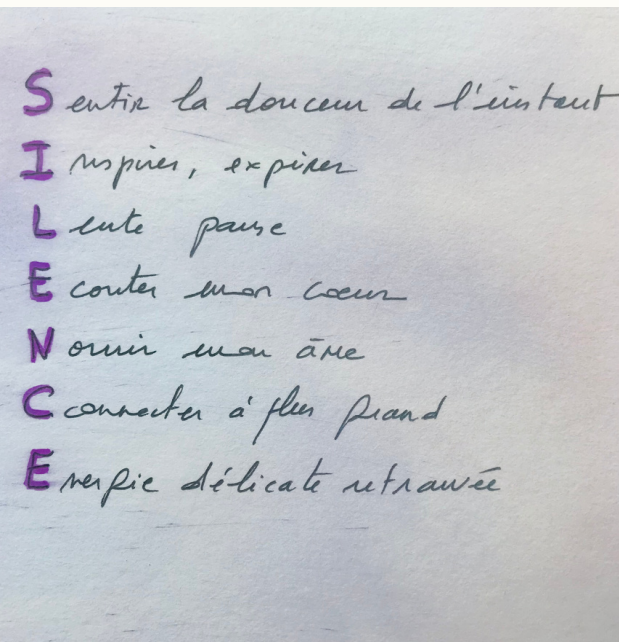 Sentir la douceur de l'instant
Inspirer, expirer
Lente pause
Ecouter mon coeur
Nourrir mon âme
Cconnecter à plus grand
Energie délicate retrouvée